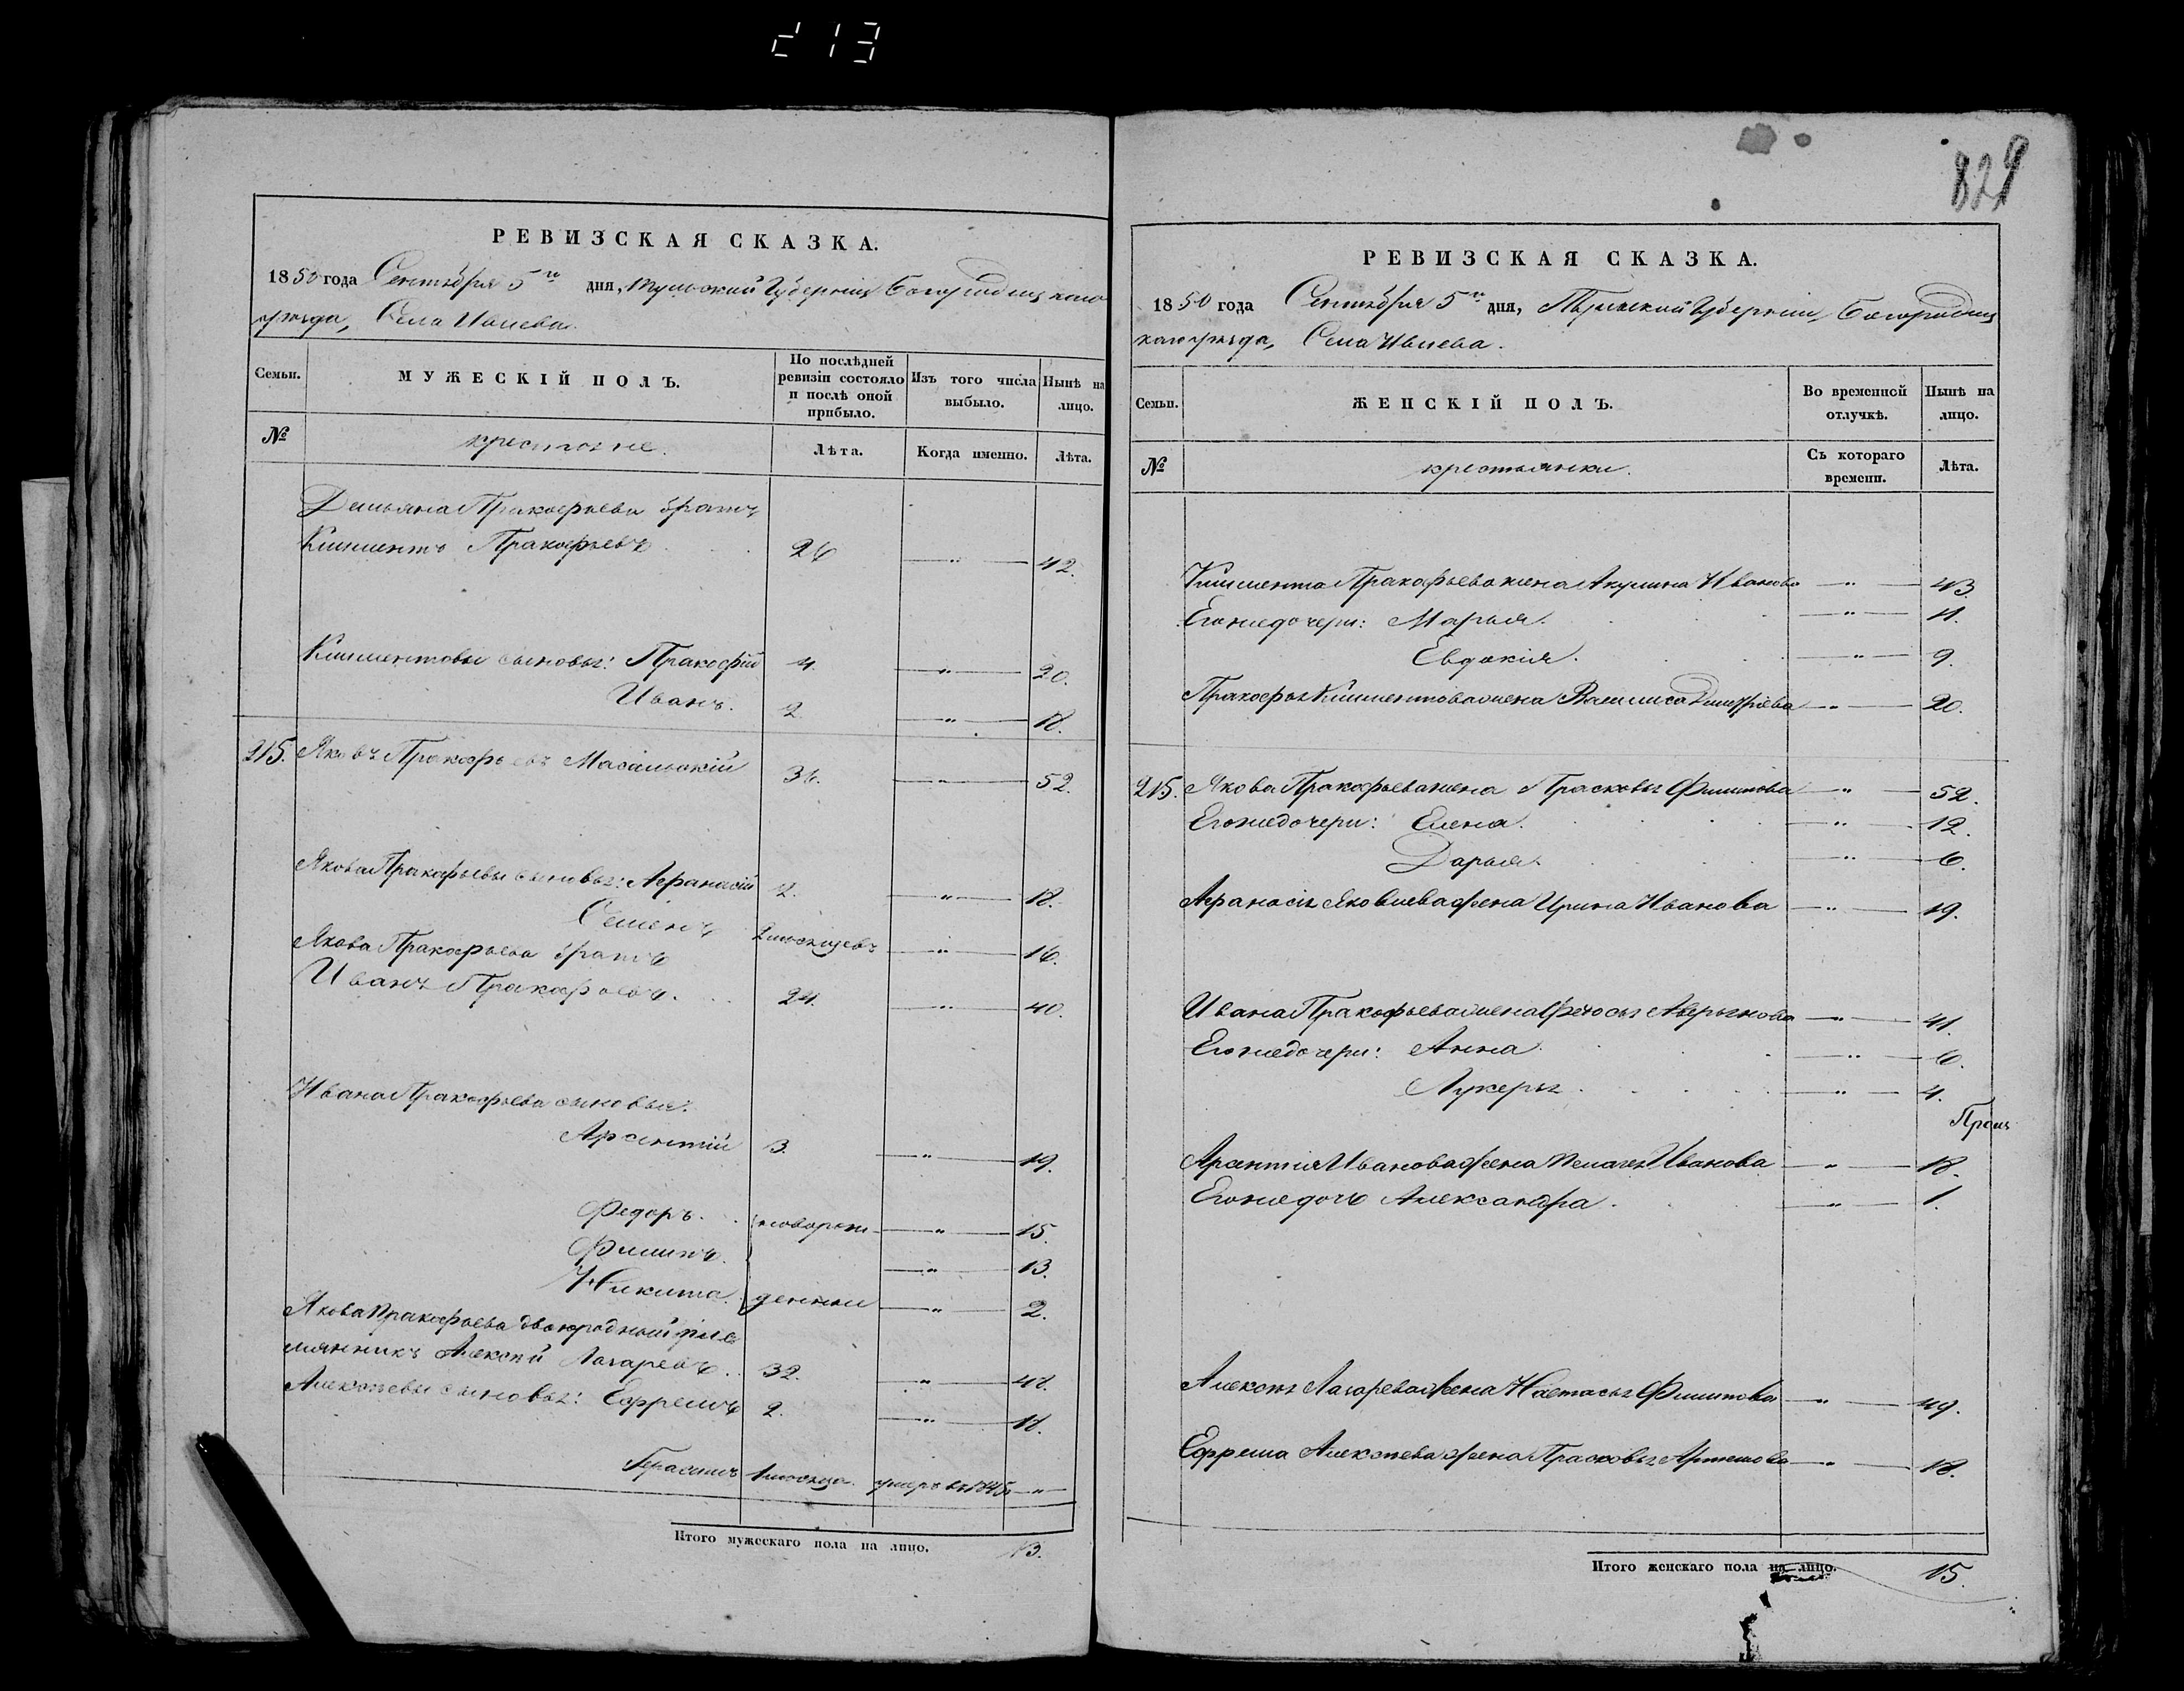 213
РЕВИЗСКАЯ СКАЗКА.
1850 года Сентября 5го дня, Тульской Губернии Богородицкаго
уезда, Села Ивлева.
Семьи.
МУЖЕСКІЙ ПОЛЪ.
По послѣдней ревизіи состояло и послѣ оной прибыло.
Изъ того числа выбыло.
Нынѣ на лицо.
№
крестьяне.
Лѣта.
Когда именно.
Лѣта.
Демьяна Пракофьева братъ
Климентъ Пракофьевъ 26 — " — 42.
Климентовы сыновья: Пракофій 4. — " — 20.
Иванъ. 2. — " — 18.
215. Яковъ Пракофьевъ 36. — " — 52.
Якова Пракофьева сыновья: Афанасій 2. — " — 18.
Семенъ — " — 16.
Якова Пракофьева братъ
Иванъ Пракофьевъ. 24. — " — 40.
Ивана Пракофьева сыновья:
Арсентій 3. — " — 19.
Федоръ. новорож — " — 15.
Филипъ. — " — 13.
Никита. денные — " — 2.
Якова Пракофьева двоюродный пле
мянникъ Алексей Лазаревъ. 32. — " — 48.
Алексеевы сыновья: Ефремъ 2. — " — 18.
Герасимъ умеръ въ 1845 — " —
Итого мужескаго пола на лицо. 13.
829
РЕВИЗСКАЯ СКАЗКА.
1850 года Сентября 5го дня, Тульской Губернии, Богородиц
каго уезда, Села Ивлева.
Семьи.
ЖЕНСКІЙ ПОЛЪ.
Во временной отлучкѣ.
Нынѣ на лицо.
№
крестьянки.
Съ котораго времени.
Лѣта.
Климента Пракофьева жена Акулина Иванова — " — 43.
Его же дочери: Марья. — " — 11.
Евдокія. — " — 9.
Пракофья Климентова жена Василиса Дмитріева — " — 20.
215. Якова Пракофьева жена Прасковья Филипова — " — 52.
Его же дочери: Елена. — " — 12.
Дарья. — " — 6.
Афанасія Яковлева жена Ирина Иванова — " — 19.
Ивана Пракофьева жена Аверьянова — " — 41.
Его же дочери: Анна. — " — 6.
Лукерья. — " — 4.
Арсентія Иванова жена Пелагея Иванова — " — 18.
Его же дочь Александра. — " — 1.
Алексея Лазарева жена Настасья Филипова — " — 49.
Ефрема Алексеева жена Прасковья Артемова — " — 18.
Итого женскаго пола на лицо. 15.